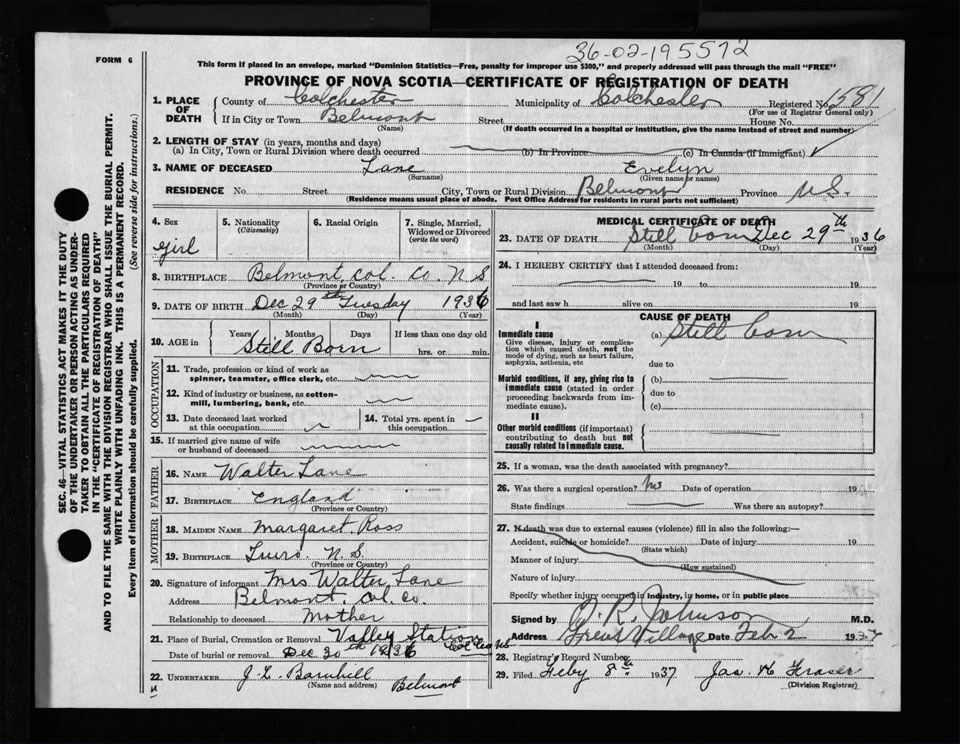 36-02-195572
FORM 6
This form if placed in an envelope, marked "Dominion Statistics—Free, penalty for improper use $300," and properly addressed will pass through the mail "FREE"
PROVINCE OF NOVA SCOTIA—CERTIFICATE OF REGISTRATION OF DEATH
1. PLACE OF DEATH
County of Colchester Municipality of Colchester Registered No. 1581
(For use of Registrar General only)
If in City or Town Belmont Street House No.
(Name) (If death occurred in a hospital or institution, give the name instead of street and number)
2. LENGTH OF STAY (in years, months and days)
(a) In City, Town or Rural Division where death occurred (b) In Province (c) In Canada (if immigrant)
3. NAME OF DECEASED Lane Evelyn
(Surname) (Given name or names)
RESIDENCE No. Street City, Town or Rural Division Belmont Province N.S.
(Residence means usual place of abode. Post Office Address for residents in rural parts not sufficient)
4. Sex
girl
5. Nationality
(Citizenship)
6. Racial Origin
7. Single, Married, Widowed or Divorced
(write the word)
8. BIRTHPLACE Belmont, Col. Co. N S
(Province or Country)
9. DATE OF BIRTH Dec 29th Tuesday 1936
(Month) (Day) (Year)
10. AGE in Years Months Days If less than one day old
Still Born hrs. or min.
OCCUPATION
11. Trade, profession or kind of work as
spinner, teamster, office clerk, etc.
12. Kind of industry or business, as cotton-
mill, lumbering, bank, etc.
13. Date deceased last worked
at this occupation
14. Total yrs. spent in
this occupation
15. If married give name of wife
or husband of deceased
FATHER
16. NAME Walter Lane
17. BIRTHPLACE England
(Province or Country)
MOTHER
18. MAIDEN NAME Margaret Ross
19. BIRTHPLACE Truro. N. S.
(Province or Country)
20. Signature of informant Mrs Walter Lane
Address Belmont. Col. Co.
Relationship to deceased Mother
21. Place of Burial, Cremation or Removal Valley Station Col Co NS
Date of burial or removal Dec 30th 1936
22. UNDERTAKER J. L. Barnhill Belmont
(Name and address)
MEDICAL CERTIFICATE OF DEATH
23. DATE OF DEATH Still born Dec 29th 1936
(Month) (Day) (Year)
24. I HEREBY CERTIFY that I attended deceased from:
19 to 19
and last saw h alive on 19
CAUSE OF DEATH
I
Immediate cause
Give disease, injury or complica-
tion which caused death, not the
mode of dying, such as heart failure,
asphyxia, asthenia, etc
(a) Still born
due to
Morbid conditions, if any, giving rise to
immediate cause (stated in order
proceeding backwards from im-
mediate cause).
(b)
due to
(c)
II
Other morbid conditions (if important)
contributing to death but not
causally related to immediate cause.
25. If a woman, was the death associated with pregnancy?
26. Was there a surgical operation? no Date of operation 19
State findings Was there an autopsy?
27. If death was due to external causes (violence) fill in also the following:—
Accident, suicide or homicide? Date of injury 19
(State which)
Manner of injury
(How sustained)
Nature of injury
Specify whether injury occurred in industry, in home, or in public place
Signed by R. Johnson M.D.
Address Great Village Date Feb 2 1937
28. Registrar's Record Number
29. Filed Feby 8th 1937 Jas. H Fraser
(Division Registrar)
SEC. 46—VITAL STATISTICS ACT MAKES IT THE DUTY
OF THE UNDERTAKER OR PERSON ACTING AS UNDER-
TAKER TO OBTAIN ALL THE PARTICULARS REQUIRED
IN THE "CERTIFICATE OF REGISTRATION OF DEATH"
AND TO FILE THE SAME WITH THE DIVISION REGISTRAR WHO SHALL ISSUE THE BURIAL PERMIT.
WRITE PLAINLY WITH UNFADING INK. THIS IS A PERMANENT RECORD.
Every item of information should be carefully supplied. (See reverse side for instructions.)